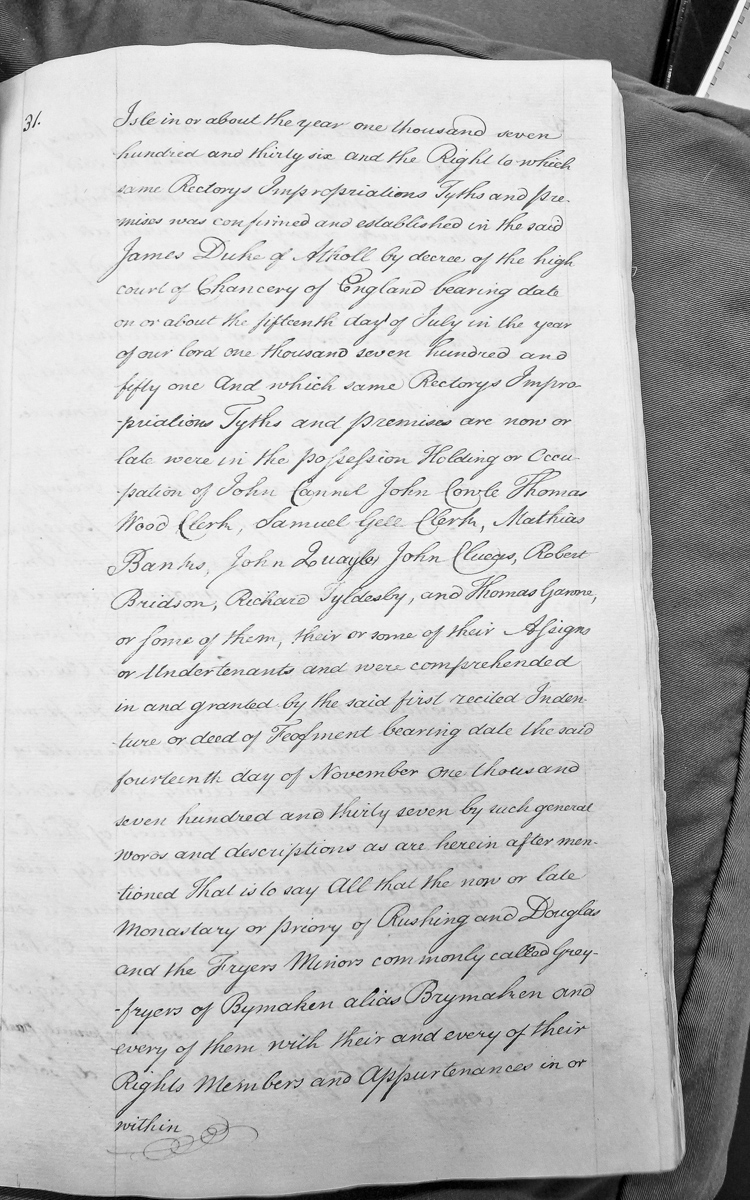 31.
Isle in or about the year one thousand seven
hundred and thirty six and the Right to which
same Rectorys Impropriations Tyths and pre-
mises was confirmed and established in the said
James Duke of Atholl by decree of the high
court of Chancery of England bearing date
on or about the fifteenth day of July in the year
of our lord one thousand seven hundred and
fifty one And which same Rectorys Impro-
-priations Tyths and premises are now or
late were in the possession Holding or Occu-
-pation of John Cannel John Cowle Thomas
Wood Clerk, Samuel Gell Clerk, Mathias
Banks, John Quayle John Clucas, Robert
Bridson, Richard Tyldesby, and Thomas Garone,
or some of them, their or some of their Assigns
or Undertenants and were comprehended
in and granted by the said first recited Inden-
-ture or deed of Feofment bearing date the said
fourteenth day of November one thousand
seven hundred and thirty seven by such general
words and descriptions as are herein after men-
-tioned That is to say All that the now or late
Monastary or priory of Rushing and Douglas
and the Fryers Minors commonly called Grey-
-fryers of Bymaken alias Brymaken and
every of them with their and every of their
Rights Members and Appurtenances in or
within